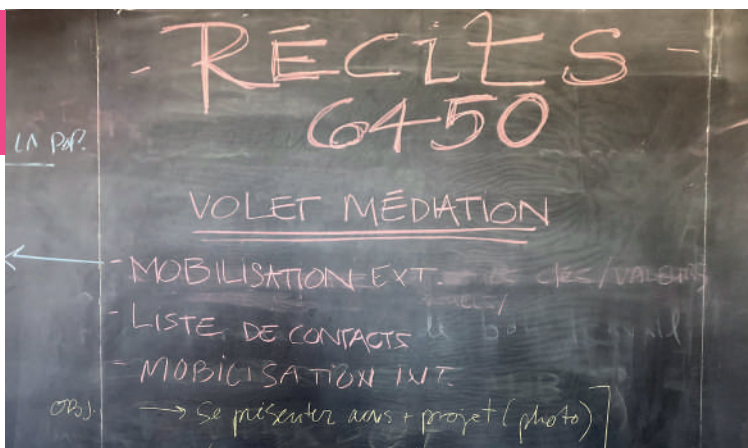 - RÉCITS -
6450
LA POP.
VOLET MÉDIATION
- MOBILISATION EXT.
- LISTE DE CONTACTS
- MOBILISATION INT.
OBJ. → Se présenter + projet (photo)